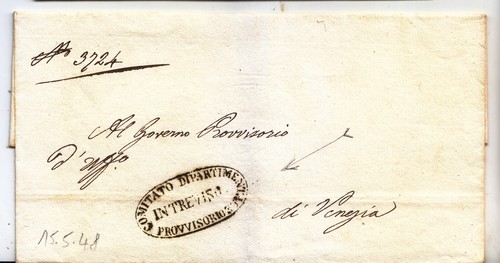 No 3724
Al Governo Provvisorio
d'Uffo.
COMITATO DIPARTIMENTALE
IN TREVISO
PROVVISORIO
di Venezia
15.5.48